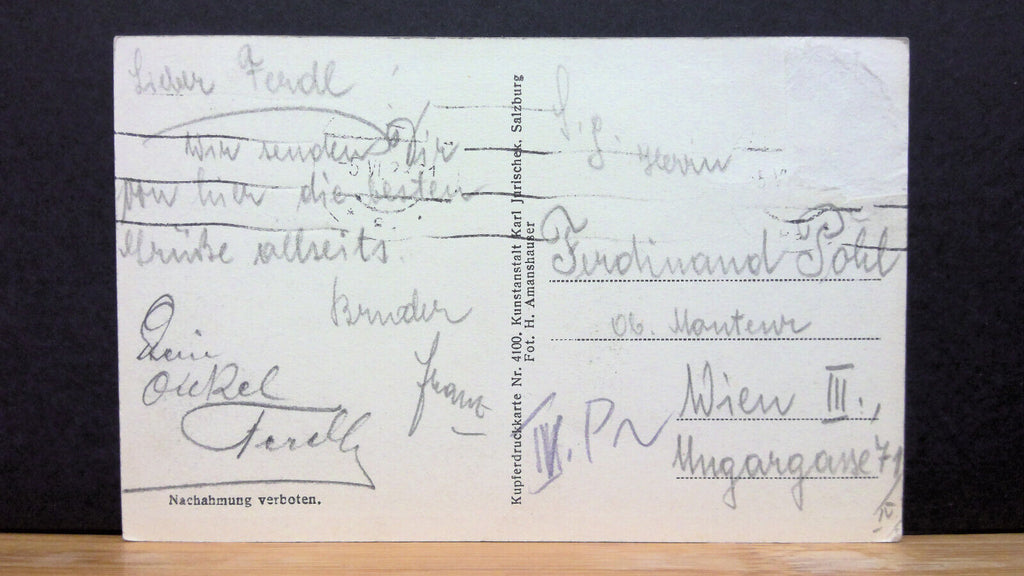 Lieber Ferdl!
Wir senden Dir
von hier die besten
Grüße allseits.
Bruder
Franz
Dein
Onkel
Ferdl
Nachahmung verboten.
Kupferdruckkarte Nr. 4100. Kunstanstalt Karl Jurischek, Salzburg
Fot. H. Amanshauser
S. g. Herrn
Ferdinand Pohl
Ob. Monteur
Wien III.,
Ungargasse 71
IV
IV.